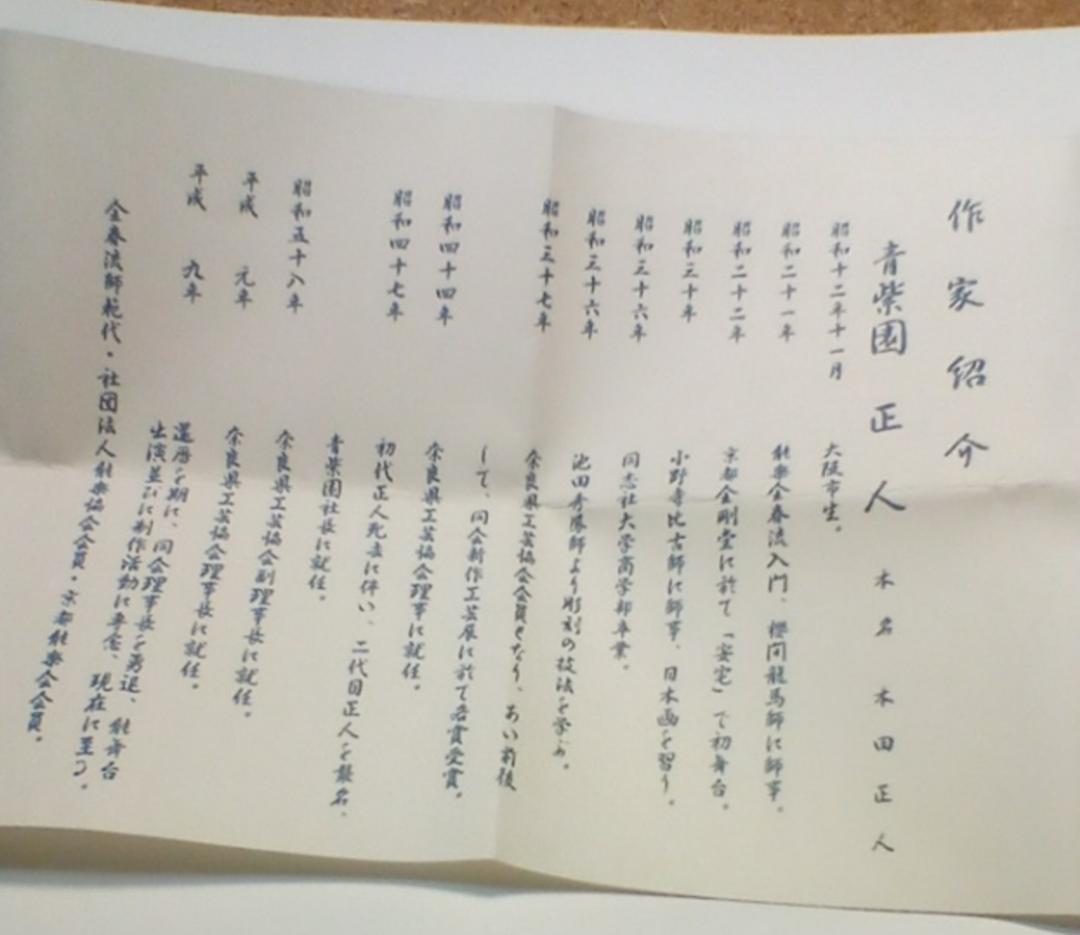 作家紹介
青柴園 正人 本名 木田正人
昭和十二年十一月 大阪市生。
昭和二十一年 能楽金春流入門、櫻間龍馬師に師事。
昭和二十二年 京都金剛堂に於て「安宅」で初舞台。
昭和三十年 小野寺比古師に師事、日本画を習う。
昭和三十六年 同志社大学商学部卒業。
昭和三十六年 池田 師より彫刻の技法を学ぶ。
昭和三十七年 奈良県工芸協会会員となり、あい前後
して、同会新作工芸展に於て各賞受賞。
昭和四十四年 奈良県工芸協会理事に就任。
昭和四十七年 初代正人死去に伴い、二代目正人を襲名。
青柴園社長に就任。
昭和五十八年 奈良県工芸協会副理事長に就任。
平成 元年 奈良県工芸協会理事長に就任。
平成 九年 還暦を期に、同会理事長を勇退、能舞台
出演並びに制作活動に専念、現在に至る。
金春流師範代・社団法人能楽協会会員・京都能楽会会員。